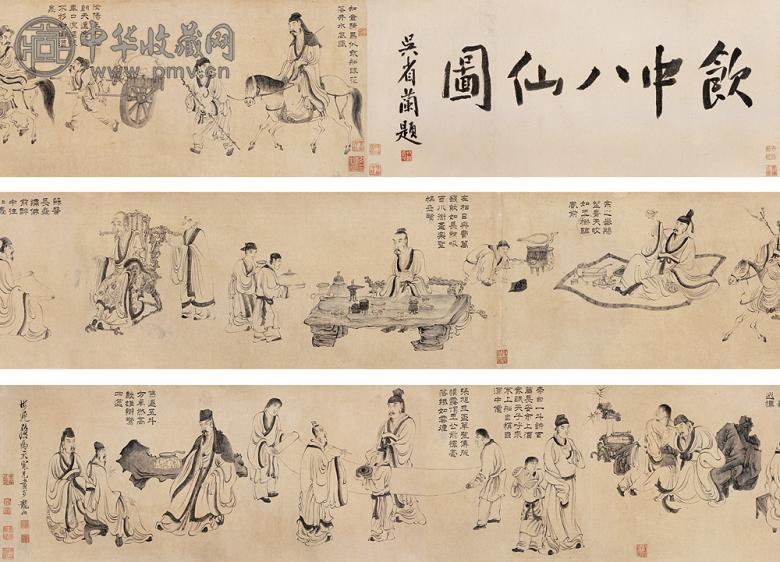 飲中八仙圖
吳省蘭題
知章騎馬似乘船眼花
落井水底眠
汝陽三
朝天道逢
車口流涎
不移封
泉
望青天皎
如玉樹臨
風前
左相日興費萬
錢飲如長鯨吸
百川銜盃樂聖
稱避賢
蘇晉
長齋
繡佛
前醉
中往
逃禪
李白一斗詩百
篇長安市上酒
家眠天子呼來
不上船自稱臣
酒中僊
張旭三盃草聖傳脫
帽露頂王公前揮毫
落紙如雲煙
焦遂五斗
方卓然高
談雄辯驚
四筵
中华收藏网
www.pmv.cn